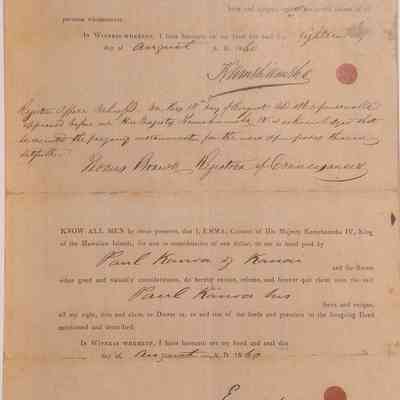 heirs and assigns against the lawful claims of all
persons whomsoever.
IN WITNESS WHEREOF, I have hereunto set my hand and seal this eighteenth
day of August A. D. 1860
Kamehameha
Registrar Office Honolulu. On this 18th day of August 1860 personally
appeared before me His Majesty Kamehameha IV &
executed the foregoing instrument for the uses & purposes therein
setforth.
Thomas Brown Registrar of Conveyances
KNOW ALL MEN by these presents, that I, EMMA, Consort of His Majesty Kamehameha IV, King
of the Hawaiian Islands, for and in consideration of one dollar, to me in hand paid by
Paul Kanoa of Kauai and for divers
other good and valuable considerations, do hereby remise, release, and forever quit claim unto the said
Paul Kanoa his heirs and assigns,
all my right, title and claim to Dower in, or to and out of the lands and premises in the foregoing Deed
mentioned and described.
IN WITNESS WHEREOF, I have hereunto set my hand and seal this
day of August A. D. 1860